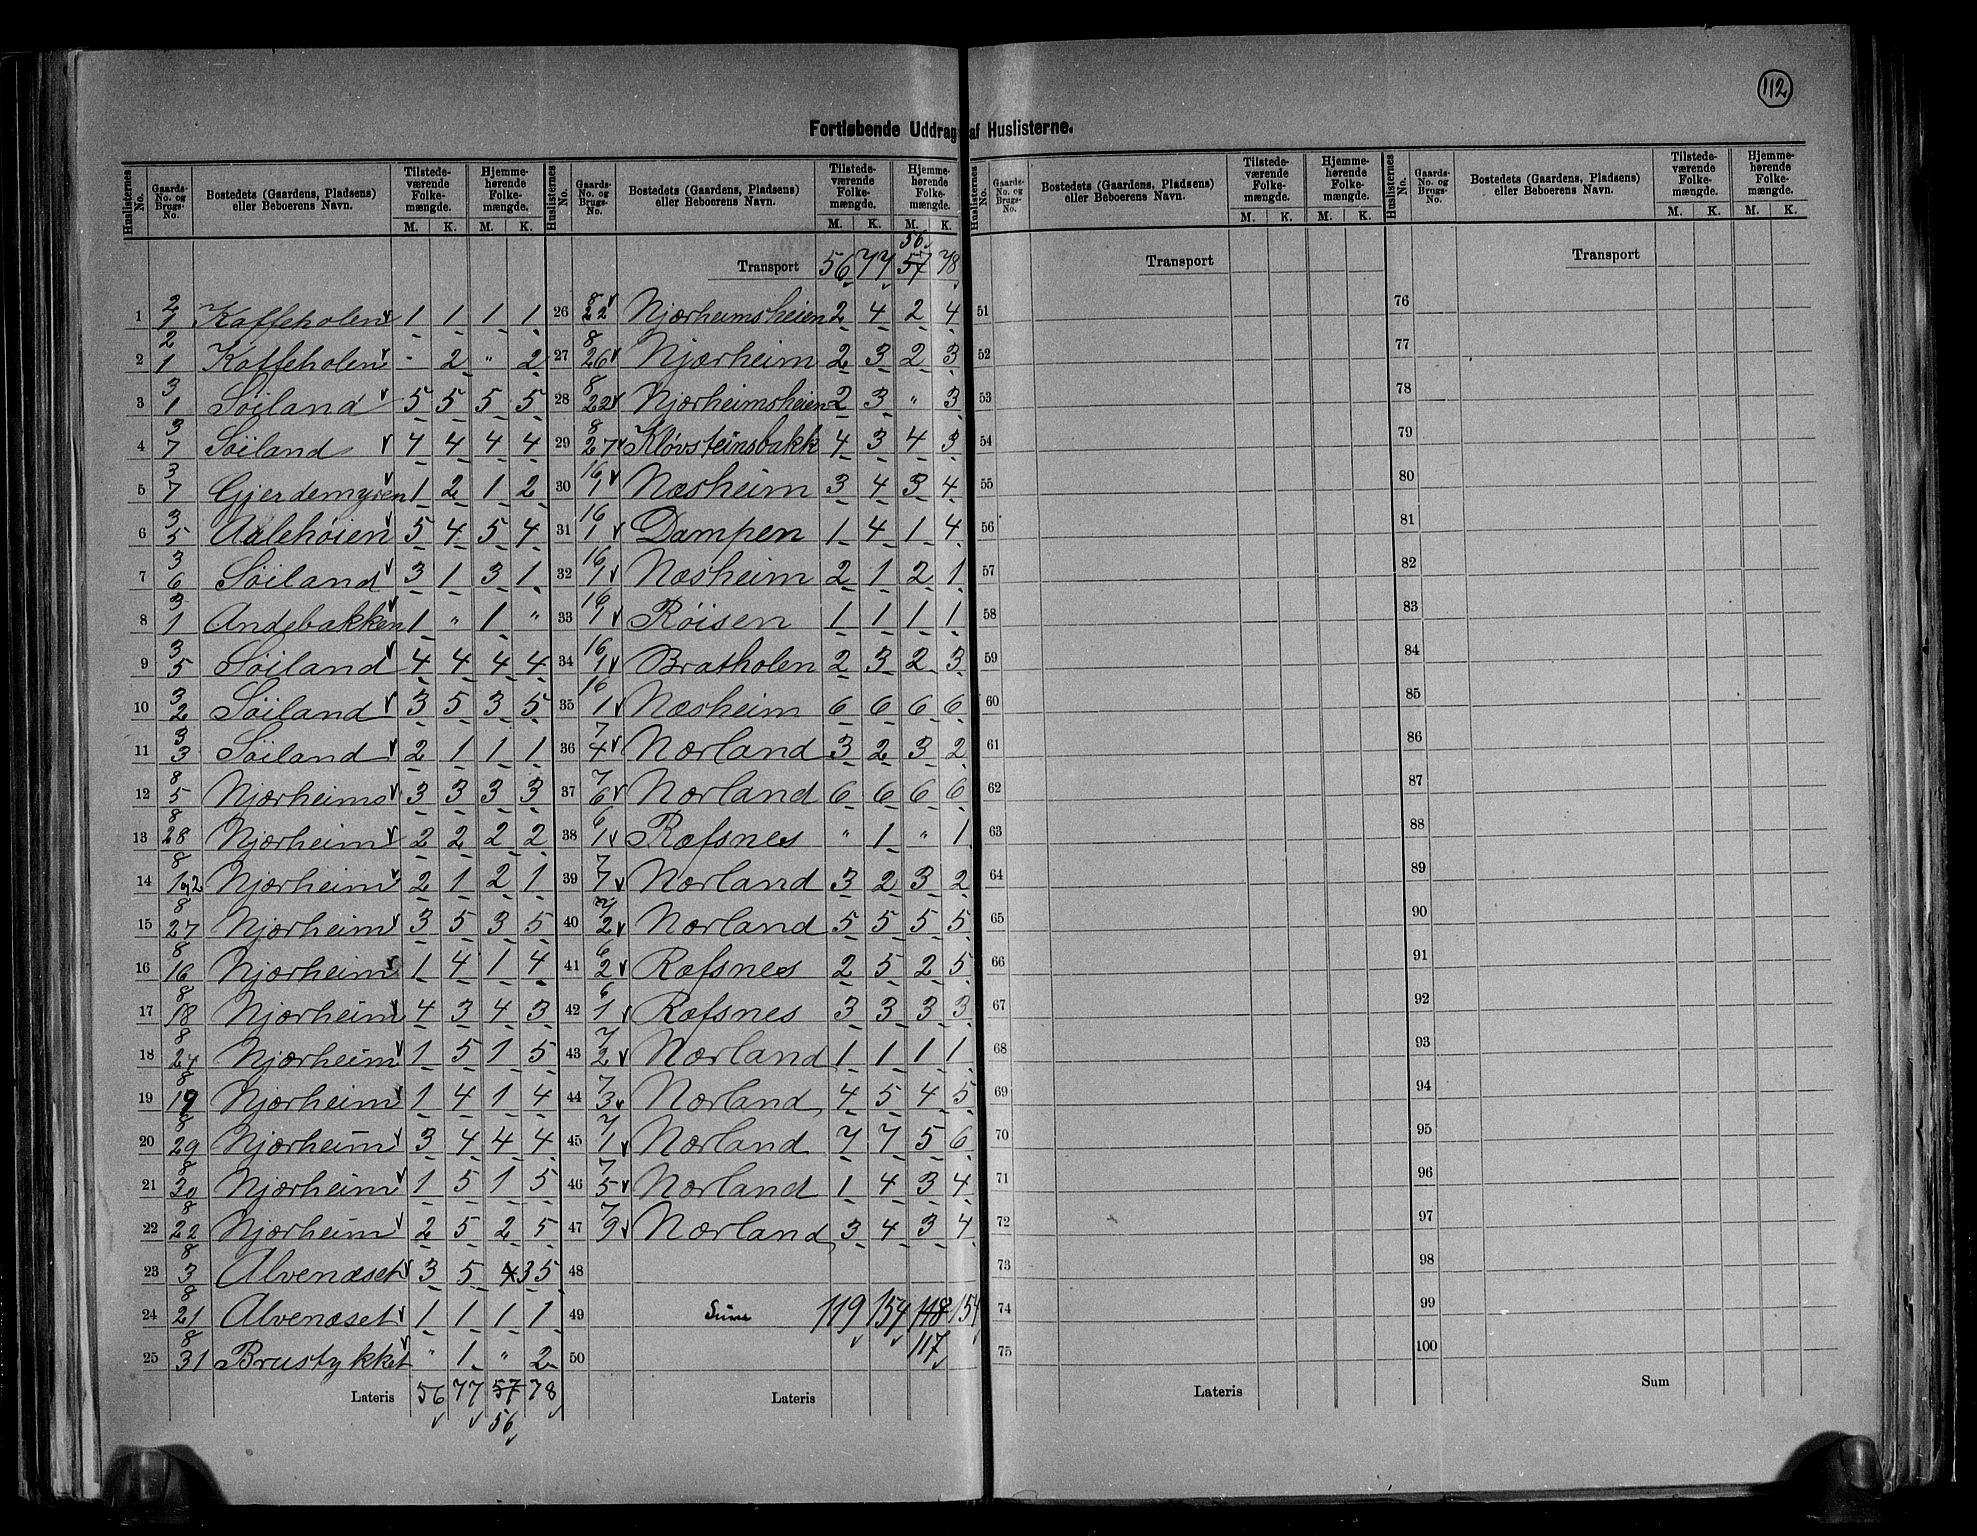 112
Fortløbende Uddrag af Huslisterne.
Huslisternes No. | Gaards-No. og Brugs-No. | Bostedets (Gaardens, Pladsens) eller Beboerens Navn. | Tilstede-værende Folke-mængde. M. K. | Hjemme-hørende Folke-mængde. M. K.
1 2/1 Kaffeholen 1 1 1 1
2 2/1 Kaffeholen - 2 " 2
3 3/1 Söiland 5 5 5 5
4 3/7 Söiland 4 4 4 4
5 3/7 Gjerdemyren 1 2 1 2
6 3/5 Aalehøien 5 4 5 4
7 3/6 Söiland 3 1 3 1
8 3/1 Andebakken 1 " 1 "
9 3/5 Söiland 4 4 4 4
10 3/2 Söiland 3 5 3 5
11 3/3 Söiland 2 1 1 1
12 8/5 Njærheim 3 3 3 3
13 8/28 Njærheim 2 2 2 2
14 8/1 Njærheim 2 1 2 1
15 8/27 Njærheim 3 5 3 5
16 8/16 Njærheim 1 4 1 4
17 8/18 Njærheim 4 3 4 3
18 8/24 Njærheim 1 5 1 5
19 8/19 Njærheim 1 4 1 4
20 8/29 Njærheim 3 4 4 4
21 8/30 Njærheim 1 5 1 5
22 8/22 Njærheim 2 5 2 5
23 8/3 Alvenæset 3 5 4 3 5
24 8/21 Alvenæset 1 1 1 1
25 8/31 Brustykket " 1 " 2
Lateris 56 77 57 78
56
Huslisternes No. | Gaards-No. og Brugs-No. | Bostedets (Gaardens, Pladsens) eller Beboerens Navn. | Tilstede-værende Folke-mængde. M. K. | Hjemme-hørende Folke-mængde. M. K.
56
Transport 56 77 57 78
26 8/22 Njærheimsheien 2 4 2 4
27 8/26 Njærheim 2 3 2 3
28 8/22 Njærheimsheien 2 3 " 3
29 8/27 Kløvsteinsbakk 4 3 4 3
30 16/1 Næsheim 3 4 3 4
31 16/1 Dampen 1 4 1 4
32 16/1 Næsheim 2 1 2 1
33 16/1 Røisen 1 1 1 1
34 16/1 Bratholen 2 3 2 3
35 16/1 Næsheim 6 6 6 6
36 7/4 Nærland 3 2 3 2
37 7/6 Nærland 6 6 6 6
38 6/1 Ræfsnes " 1 " 1
39 7/7 Nærland 3 2 3 2
40 7/2 Nærland 5 5 5 5
41 6/2 Ræfsnes 2 5 2 5
42 6/1 Ræfsnes 3 3 3 3
43 7/2 Nærland 1 1 1 1
44 7/3 Nærland 4 5 4 5
45 7/1 Nærland 7 7 5 6
46 7/5 Nærland 1 4 3 4
47 7/9 Nærland 3 4 3 4
48
49 Sum 119 154 118 154
50 117
Lateris
Huslisternes No. | Gaards-No. og Brugs-No. | Bostedets (Gaardens, Pladsens) eller Beboerens Navn. | Tilstede-værende Folke-mængde. M. K. | Hjemme-hørende Folke-mængde. M. K.
Transport
51
52
53
54
55
56
57
58
59
60
61
62
63
64
65
66
67
68
69
70
71
72
73
74
75
Lateris
Huslisternes No. | Gaards-No. og Brugs-No. | Bostedets (Gaardens, Pladsens) eller Beboerens Navn. | Tilstede-værende Folke-mængde. M. K. | Hjemme-hørende Folke-mængde. M. K.
Transport
76
77
78
79
80
81
82
83
84
85
86
87
88
89
90
91
92
93
94
95
96
97
98
99
100
Sum